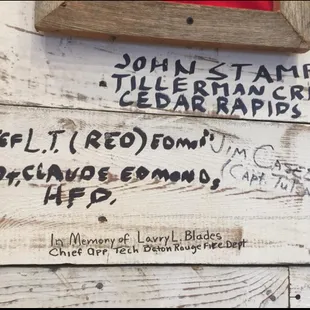 JOHN STAMP
TILLERMAN CR
CEDAR RAPIDS
L.T. (RED) EDMON
JIM
CLAUDE EDMONDS
(CAPT.
H.F.D.
In Memory of Larry L. Blades
Chief App Tech Baton Rouge Fire Dept